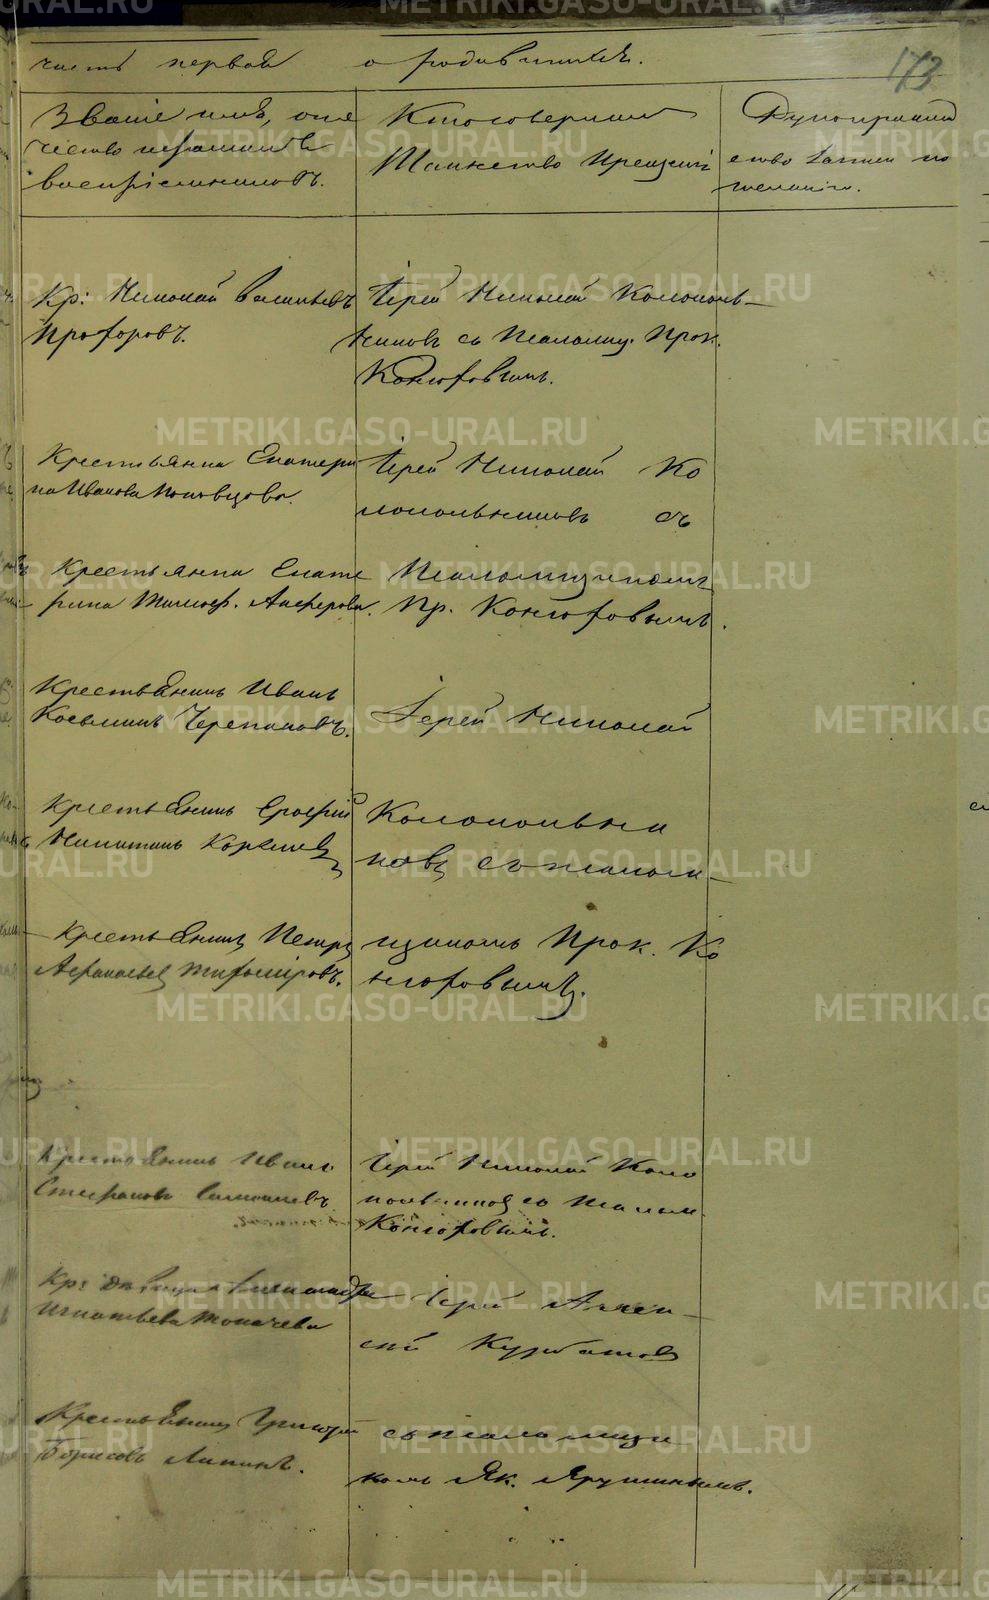 часть первая о родившихся.
173
Званіе имя, оте
чество и фамилія
воспріемниковъ.
Кто совершалъ
Таинство Крещенія
Рукоприклад
ство
желанію.
Кр: Николай Васильевъ
Прохоровъ.
Іерей Николай Колоколь-
никовъ съ Псаломщ. Прок.
Конюховымъ.
Крестьянка Екатери
на Иванова
Іерей Николай Ко
локольниковъ съ
Крестьянка Екате
рина Тимоф. Алферова.
Псаломщикомъ
Пр. Конюховымъ.
Крестьянинъ Иванъ
Косьминъ Черепановъ.
Іерей Николай
Крестьянинъ Ерофей
Никитинъ
Колокольни
ковъ съ псалом-
Крестьянинъ Петръ
Афанасьевъ
щикомъ Прок. Ко
нюховымъ.
Крестьянинъ Иванъ
Стефановъ
Іерей Николай Коло
кольниковъ съ Псалом.
Конюховымъ.
Кр: девица Александра
Игнатьева Токачева
Іерей Алек-
сій Курбатовъ
Крестьянинъ Григорій
Борисовъ Липинъ.
съ псаломщи
комъ Як. Ярушинымъ.
METRIKI.GASO-URAL.RU